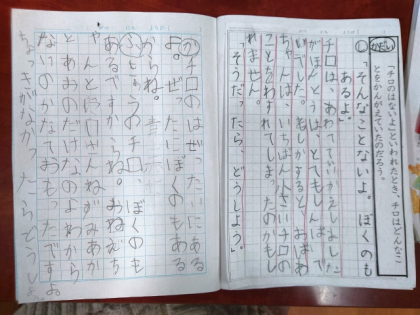 かだい
「チロのはないよ」といわれたとき、チロはどんなことをかんがえていたのだろう。
「そんなことないよ。ぼくのも
あるよ」
チロは、あわてていいかえしました
がほんとうは、とてもしんぱいで
でした。もしかすると、おばあ
ちゃんは、いちばん小さいチロの
ことをわすれてしまったのかもし
れません。
「そうだったら、どうしよう。」
チロのはぜったいにある
よ。ぜったにぼくのもある
からね。
チロ ぼくのも
あるですからね。おねえち
ゃんとにいさんねずみあか
とあおのだけな
ないのかなっておもったですよ
ちょっきがなかったらどうしよ